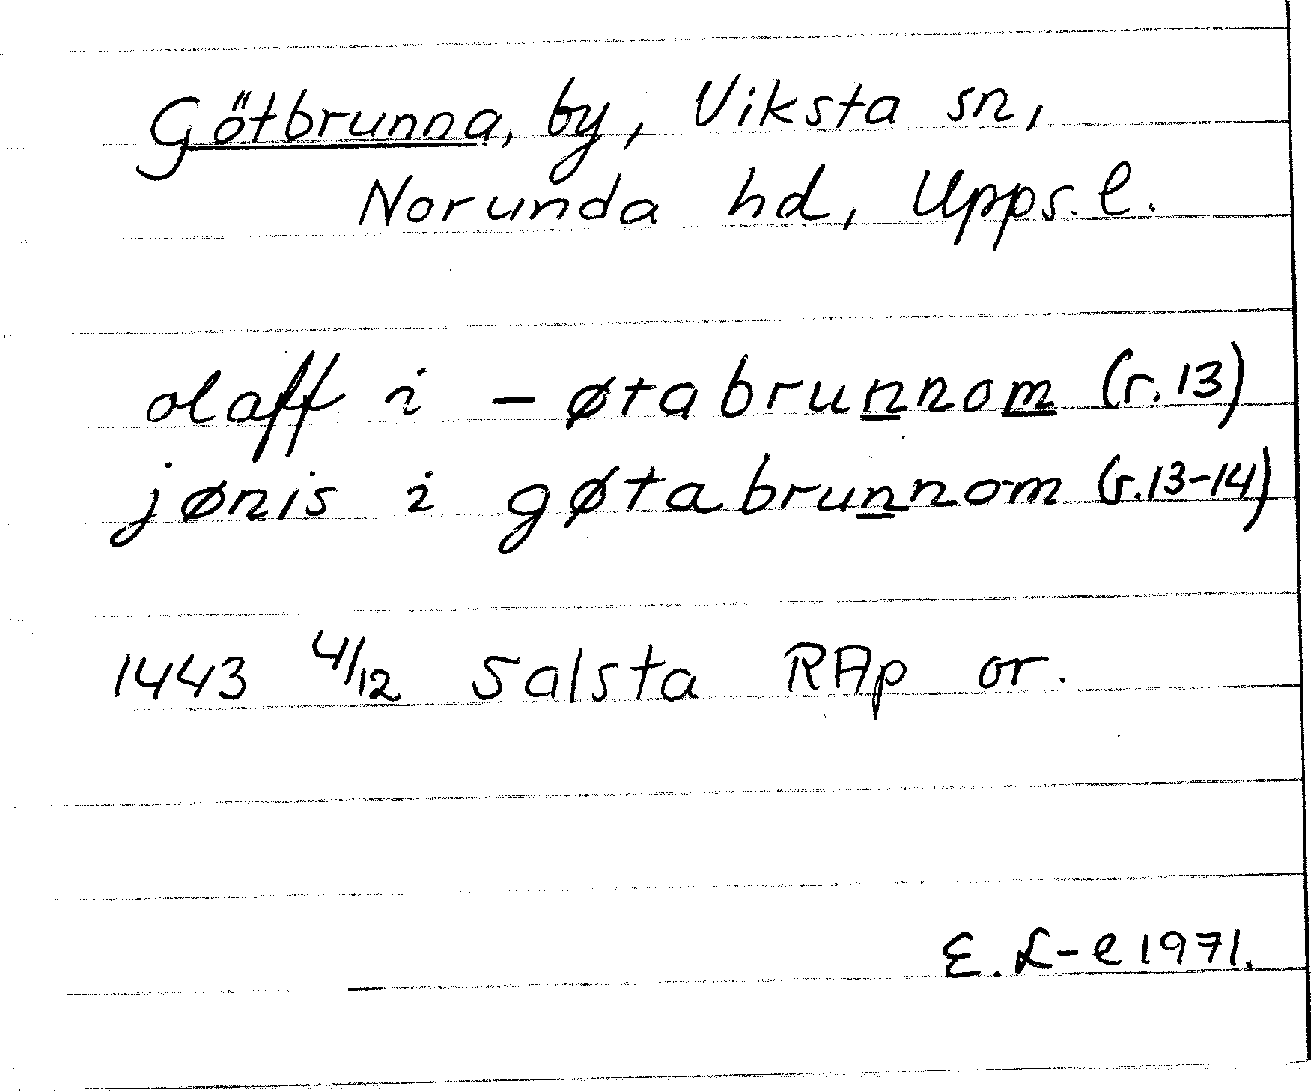 Götbrunna, by, Viksta sn,
Norunda hd, Upps. l.
olaff i - øtabrunnom (r. 13)
jønis i gøtabrunnom (r. 13-14)
1443 4/12 Salsta RAp or.
E. L-e 1971.